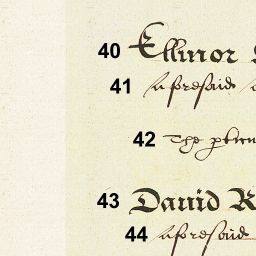 40 Ellinor
41 aforesaid
42 The
43 Dauid R
44 aforesaid